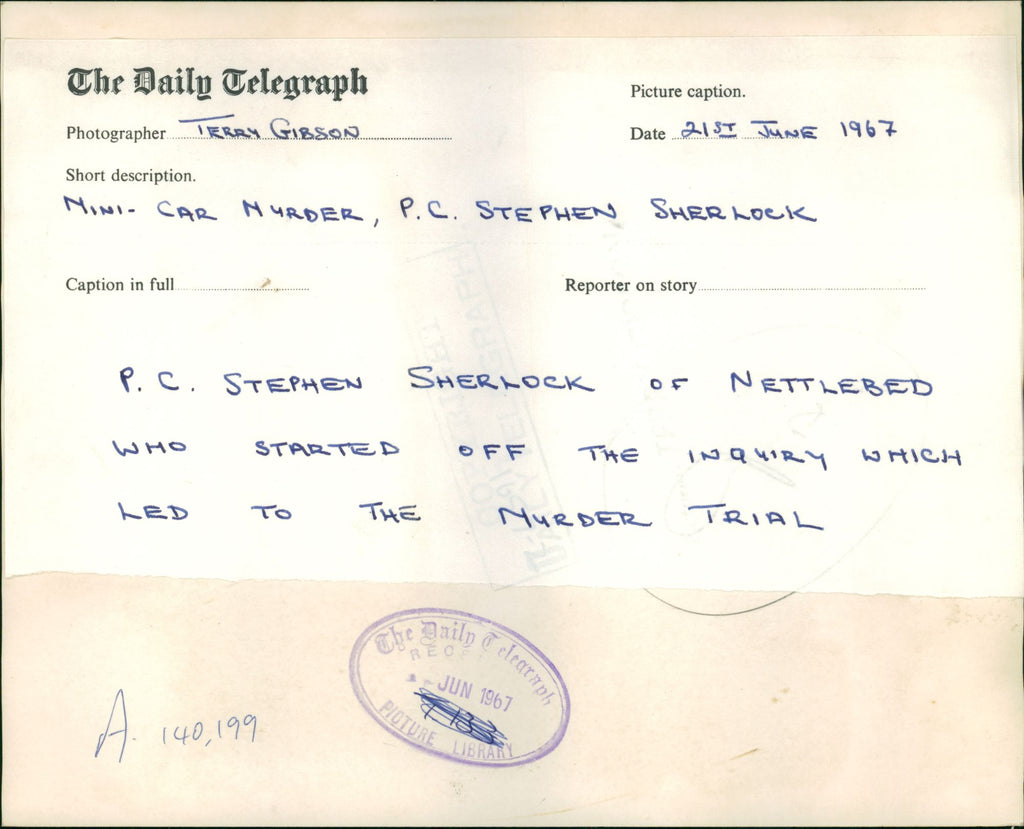 The Daily Telegraph
Picture caption.
Photographer TERRY GIBSON
Date 21ST JUNE 1967
Short description.
MINI- CAR MURDER, P.C. STEPHEN SHERLOCK
Caption in full
Reporter on story
P.C. STEPHEN SHERLOCK OF NETTLEBED
WHO STARTED OFF THE INQUIRY WHICH
LED TO THE MURDER TRIAL
The Daily Telegraph
JUN 1967
PICTURE LIBRARY
A. 140,199